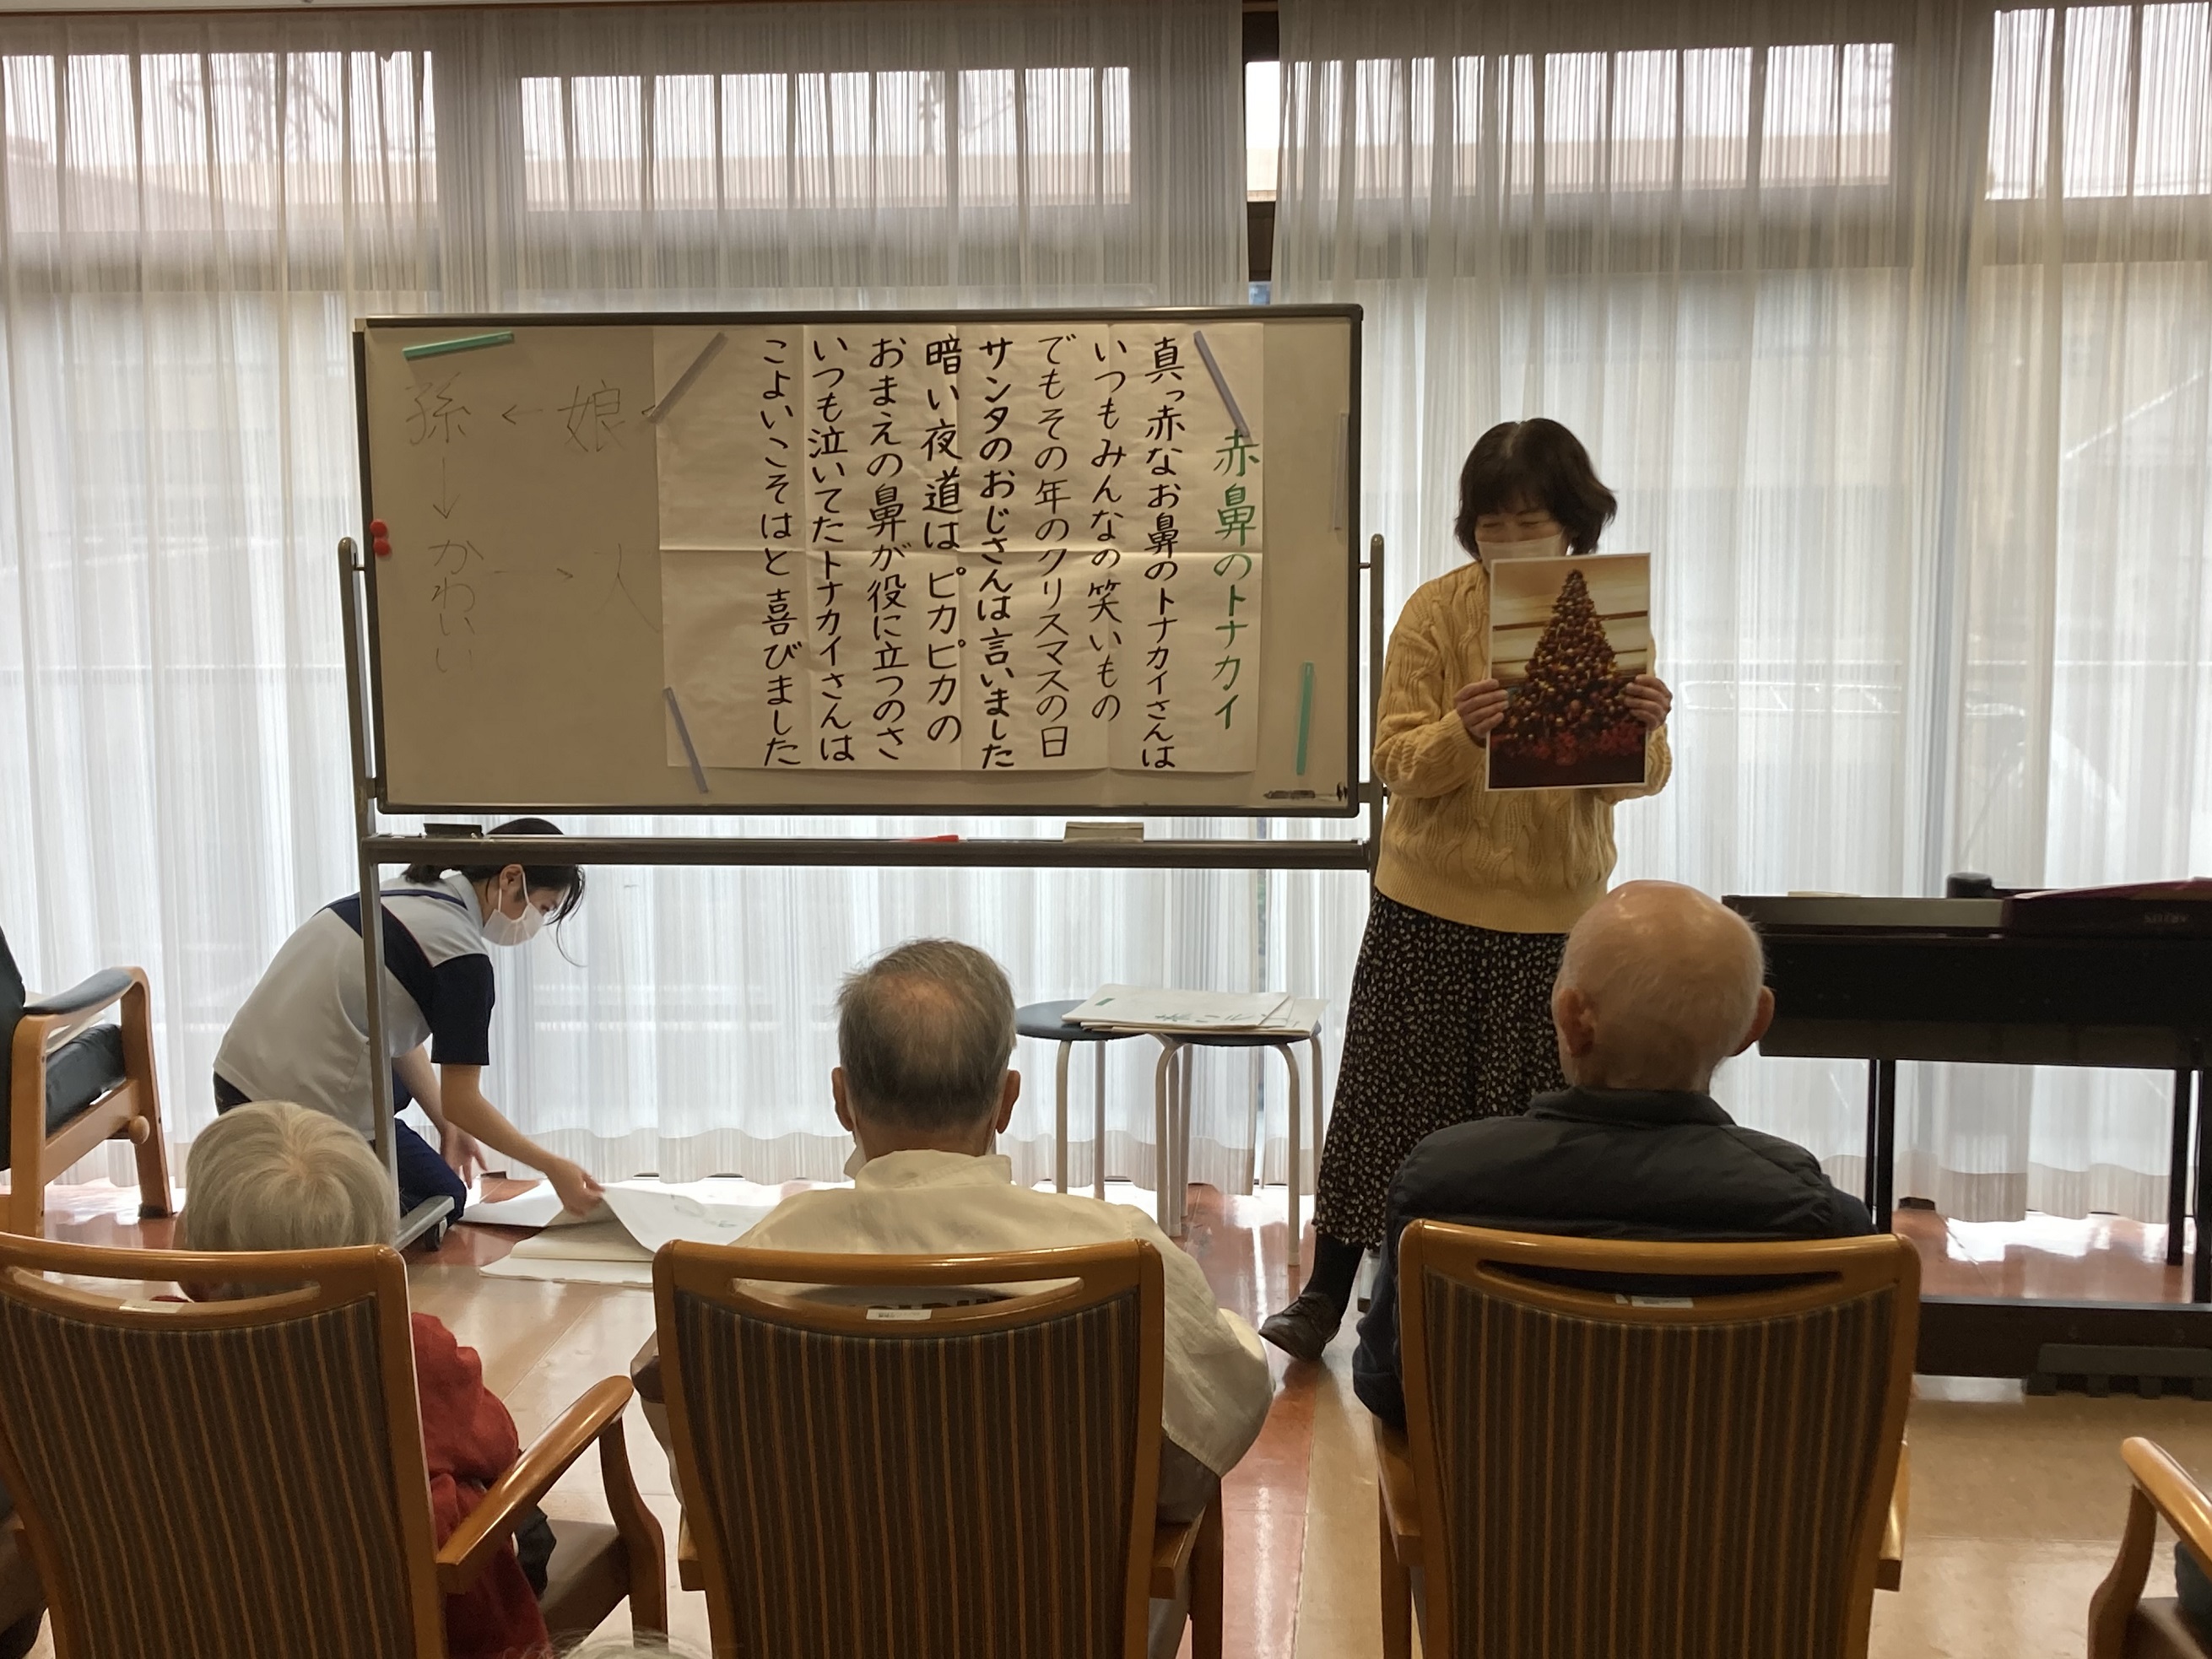 赤鼻のトナカイ
真っ赤なお鼻のトナカイさんは
いつもみんなの笑いもの
でもその年のクリスマスの日
サンタのおじさんは言いました
暗い夜道はピカピカの
おまえの鼻が役に立つのさ
いつも泣いてたトナカイさんは
こよいこそはと喜びました
娘
孫
かわいい